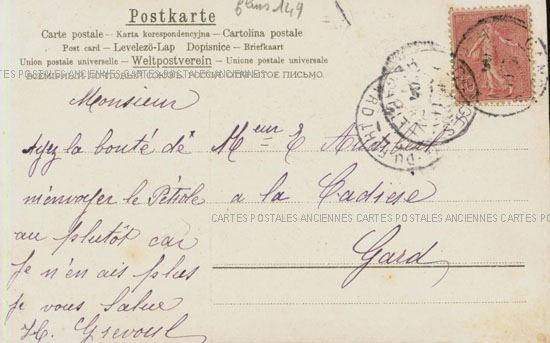 Postkarte
Carte postale - Karta korespondencyjna - Cartolina postale
Post card - Levelező-Lap Dopisnice - Briefkaart
Union postale universelle - Weltpostverein - Unione postale universale
CARTES POSTALES ANCIENNES CARTES POSTALES ANCIENNES CARTES POSTALES ANCIENNES
Monsieur
Ayez la bonté de
m'envoyer le Pétrole
au plutôt car
je n'en ais plus
je vous Salue
H. Grevoul
Meur E Audibert
a la Cadiere
CARTES POSTALES ANCIENNES CARTES POSTALES ANCIENNES CARTES POSTALES
Gard